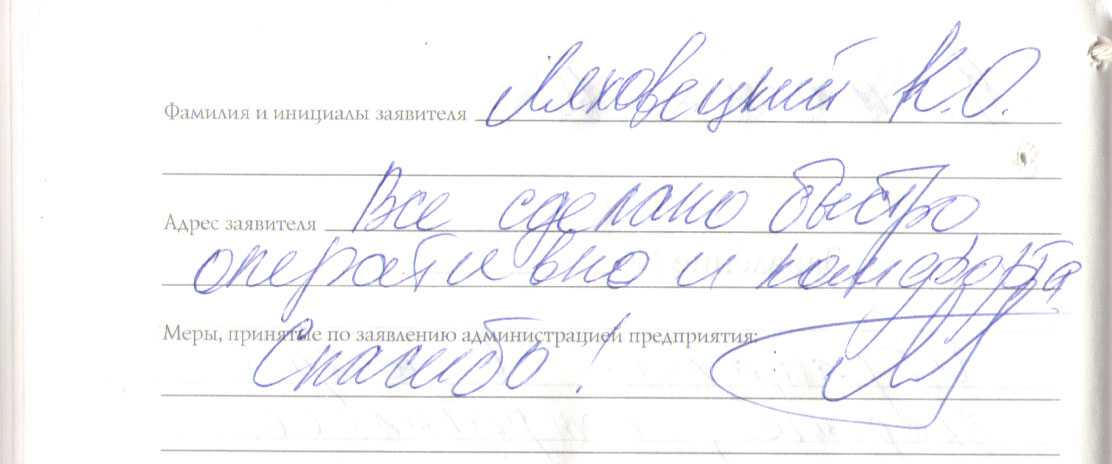 Фамилия и инициалы заявителя Ляховецкий К.О.
Адрес заявителя Все сделано быстро
оперативно и комфорта
Меры, принятые по заявлению администрацией предприятия:
Спасибо!